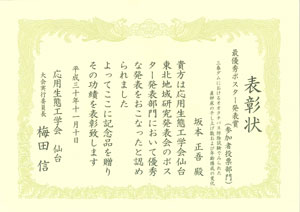 表彰状
最優秀ポスター発表賞
(参加者投票部門)
坂本 正吾 殿
貴方は応用生態工学会仙台
東北地域研究発表会のポス
ター発表部門において優秀
な発表をおこなったと認め
られました
よってここに記念品を贈り
その功績を表彰致します
平成三十年十一月十日
応用生態工学会 仙台
大会実行委員長
梅田 信